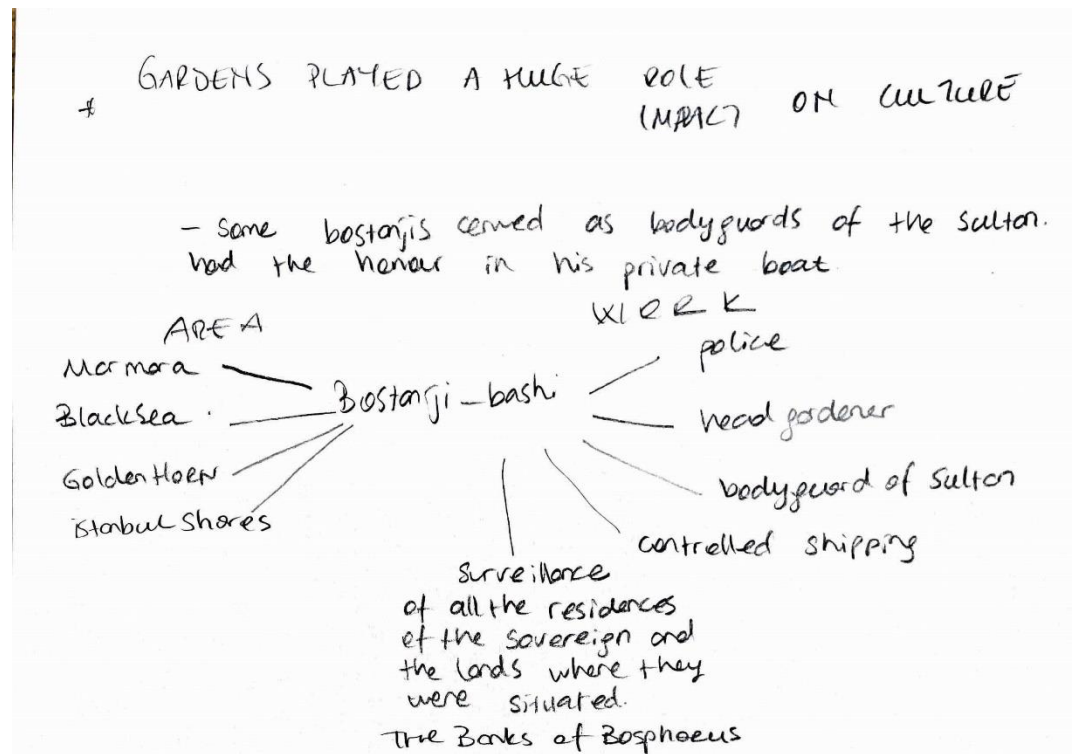 * GARDENS PLAYED A HUGE ROLE
IMPACT ON CULTURE
- Some bostanjis cerved as bodyguards of the sultan.
had the honour in his private boat.
AREA
Marmara
BlackSea
Golden HoRN
istanbul shores
Bostanji-bashi
WORK
police
head gardener
bodyguard of Sultan
controlled shipping
Surveillance
of all the residences
of the sovereign and
the lands where they
were situated.
The Banks of Bosphorus